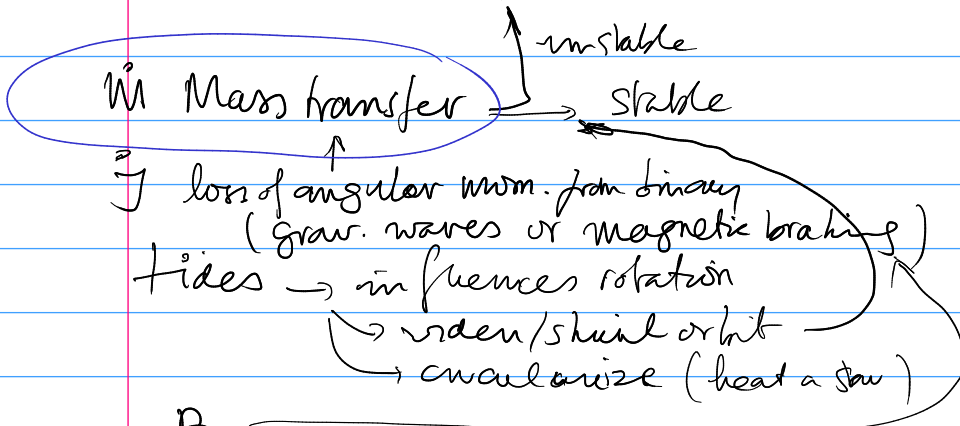 unstable
ṁ Mass transfer → stable
J̇ loss of angular mom. from binary
(grav. waves or magnetic braking)
tides → influences rotation
→ widen/shrink orbit
→ circularize (heat a star)